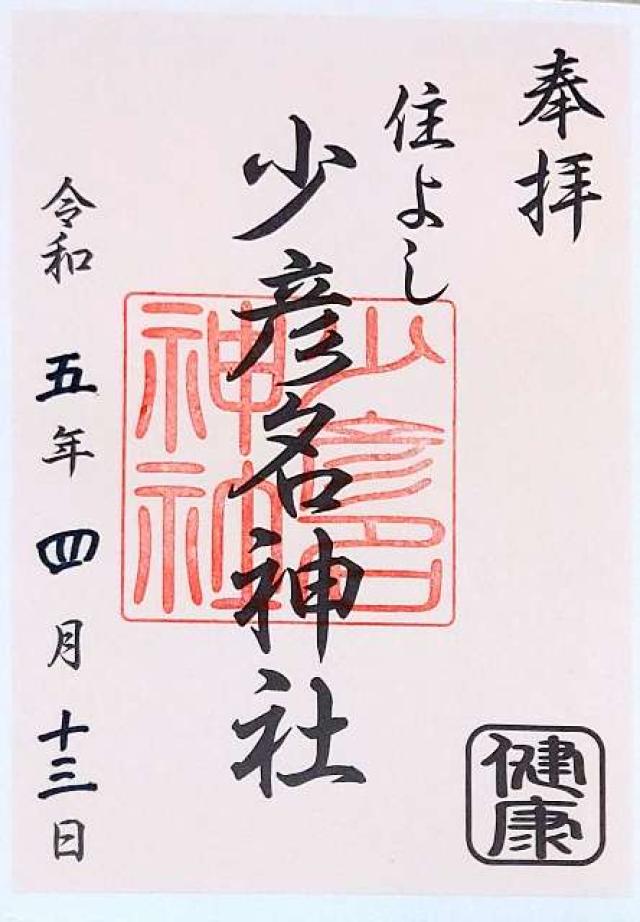 奉拝
住よし
少彦名神社
少彦名神社
令和五年四月十三日
健康